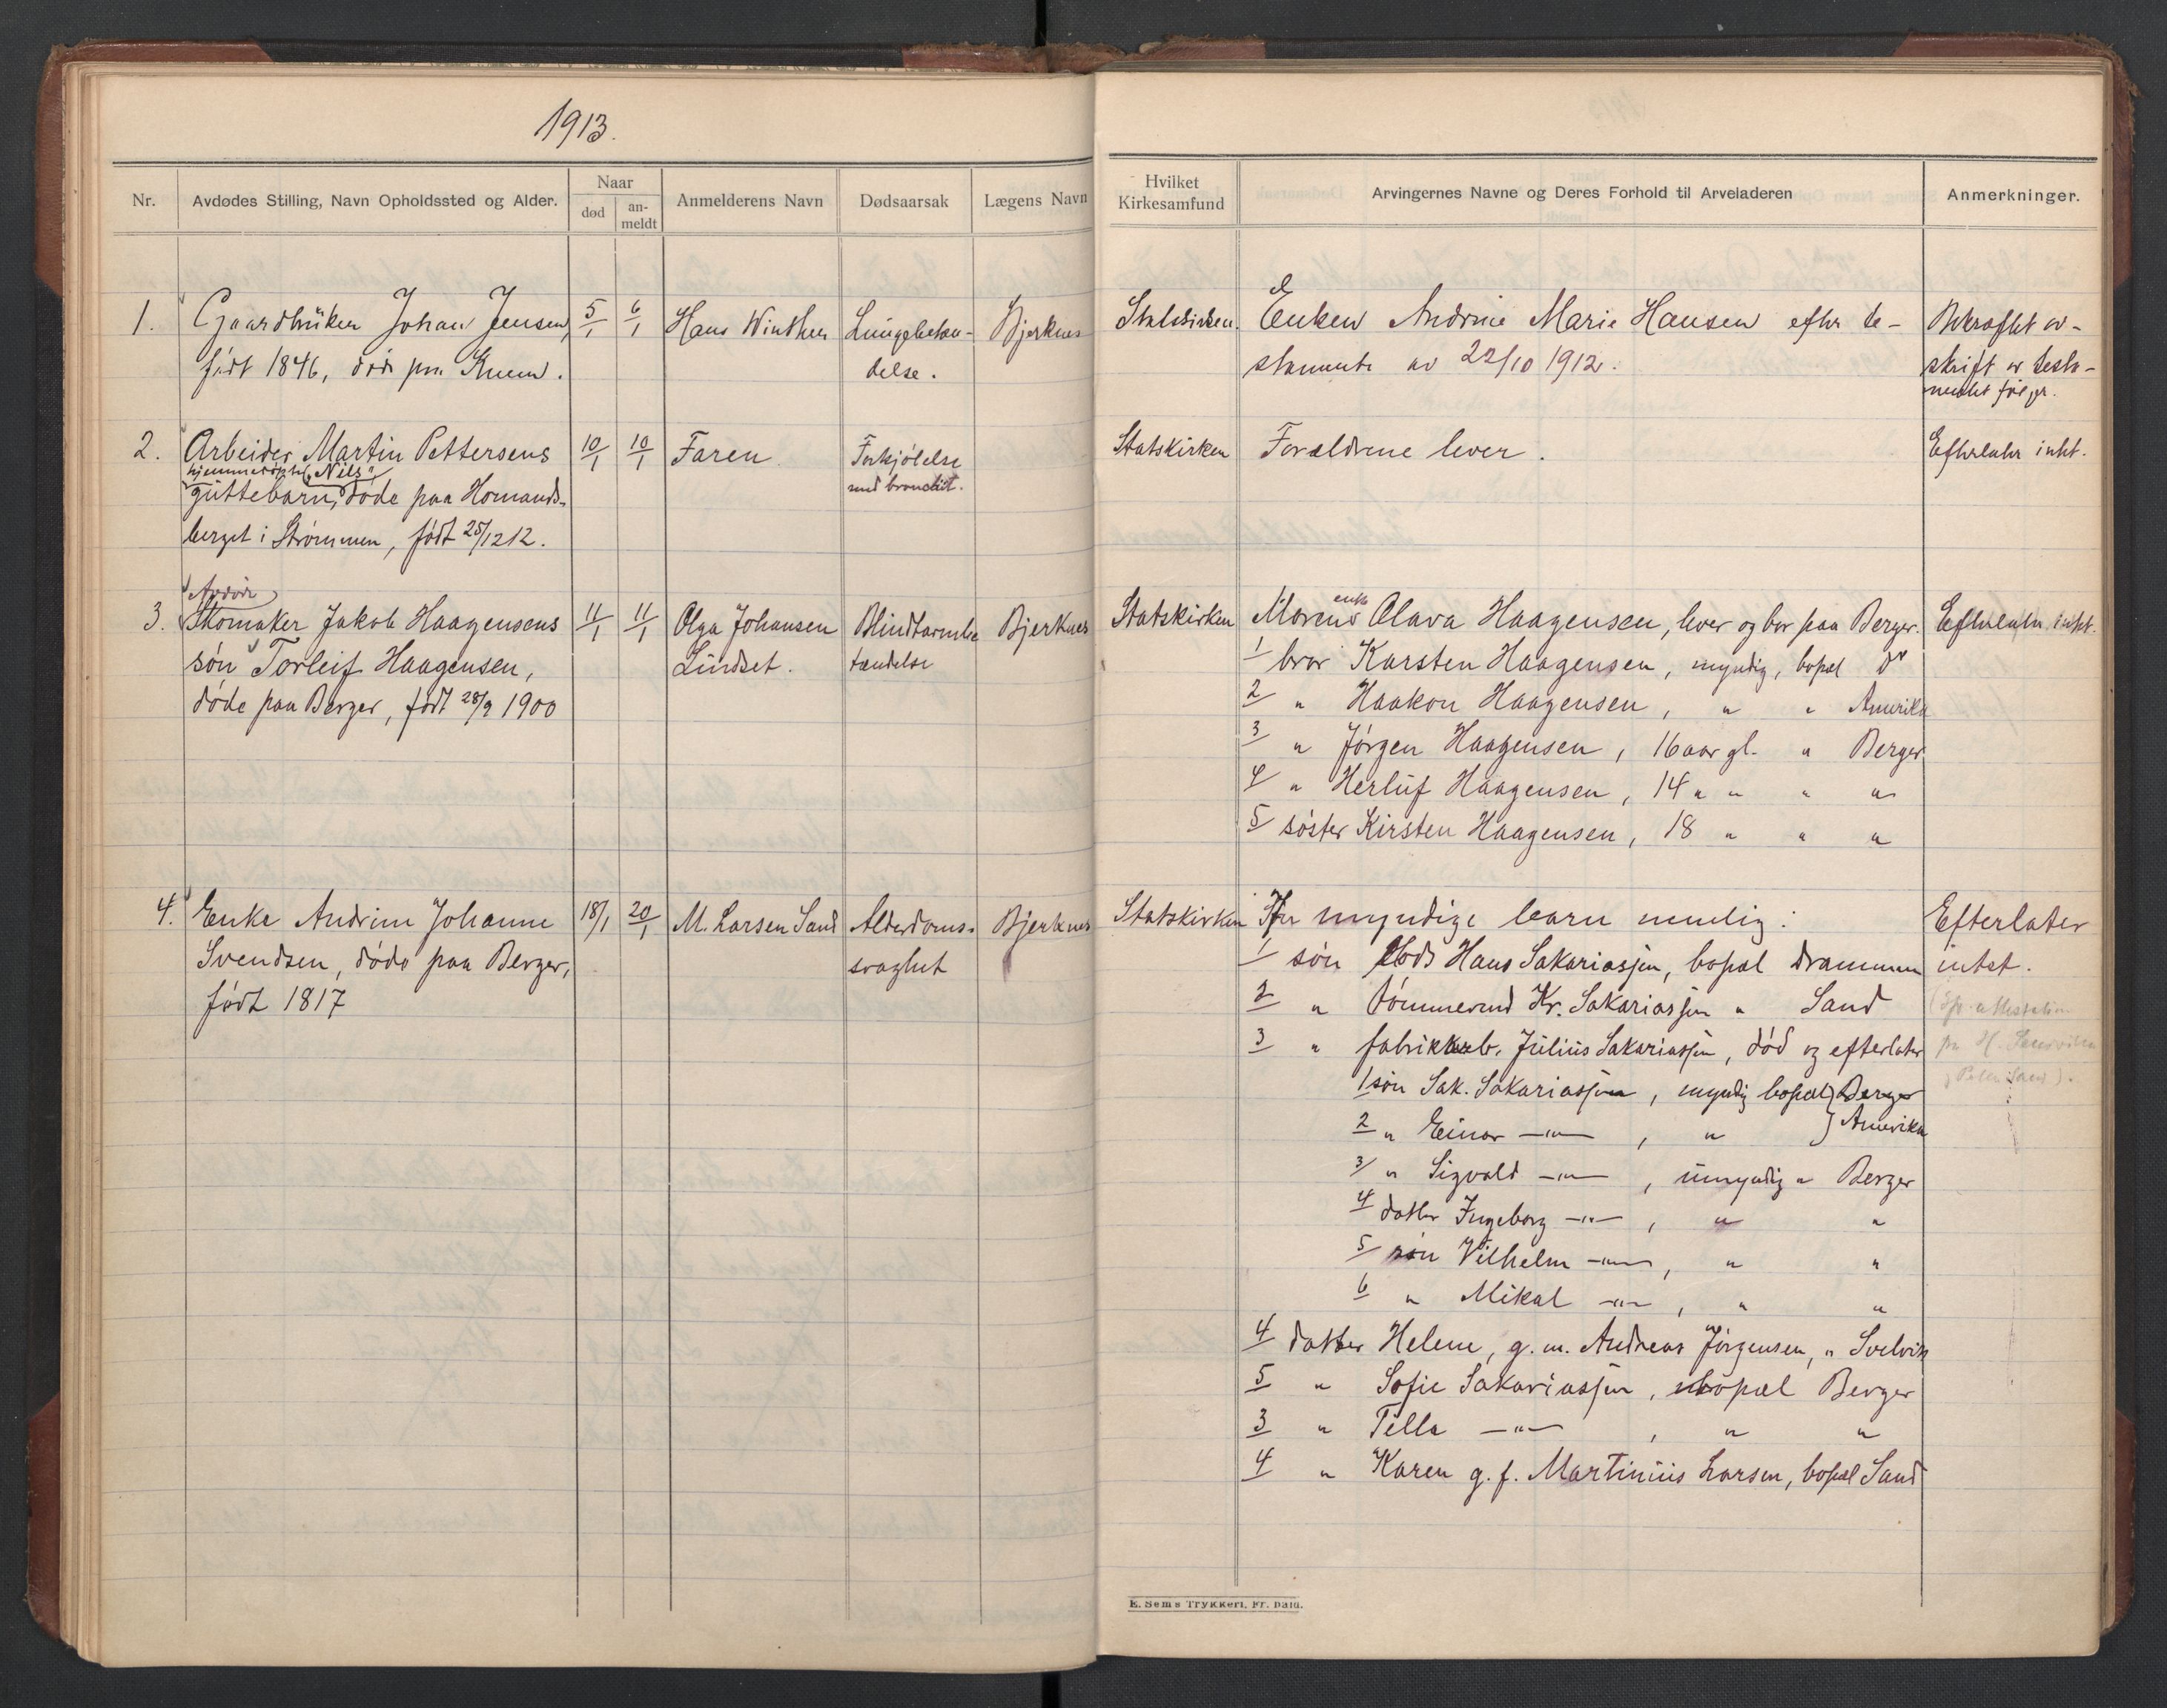 1913.
Nr.
Avdødes Stilling, Navn Opholdssted og Alder.
Naar
død
an-
meldt
Anmelderens Navn
Dødsaarsak
Lægens Navn
1.
Gaardbruker Johan Jensen,
født 1846, døde paa Knem.
5/1
6/1
Hans Winther
Lungebeten-
delse.
Bjerknes
2.
Arbeider Martin Pettersens
hjemmedøpte "Nils"
guttebarn, døde paa Homands-
berget i Strømmen, født 25/12 12.
10/1
10/1
Faren
Forkjølelse
med bronchit.
3.
Avdøde
Skomaker Jakob Haagensens
søn Torleif Haagensen,
døde paa Berger, født 28/9 1900
11/1
11/1
Olga Johansen
Lindset.
Blindtarmbe
tændelse
Bjerknes
4.
Enke Andrine Johanne
Svendsen, døde paa Berger,
født 1817
18/1
20/1
M. Larsen Sand
Alderdoms-
svaghet
Bjerknes
Hvilket
Kirkesamfund
Arvingernes Navne og Deres Forhold til Arveladeren
Anmerkninger.
Statskirken.
Enken Andrine Marie Hansen efter te-
stamente av 22/10 1912.
Bekræftet av-
skrift av testa-
mentet følger.
Statskirken
Forældrene lever.
Efterlater intet.
Statskirken
Moren enke Olava Haagensen, lever og bor paa Berger.
Efterlater intet.
1 bror Karsten Haagensen, myndig, bopæl do
2 " Haakon Haagensen, " " Amerika
3 " Jørgen Haagensen, 16 aar gl. " Berger
4 " Herluf Haagensen, 14 " " " "
5 søster Kirsten Haagensen, 18 " " "
Statskirken
myndige barn nemlig:
Efterlater
intet.
1 søn Hans Sakariassen, bopæl Drammen
2 " tømmermd Kr. Sakariassen " Sand
3 " fabrikkarb. Julius Sakariassen, død og efterlater
1 søn Sak. Sakariassen, myndig bopæl } Berger
2 " Einar —"— , " } Amerika
3 " Sigvald —"— , umyndig " Berger
4 datter Ingeborg —"— , " "
5 søn Vilhelm —"— , " "
6 " Mikal —"— , " "
4 datter Helene, g. m. Andreas Jørgensen, " Svelvik
5 " Sofie Sakariassen, bopæl Berger
3 " Tella —"— , " "
4 " Karen g. f. Martinius Larsen, bopæl Sand
E. Sems Trykkeri, Fr.hald.